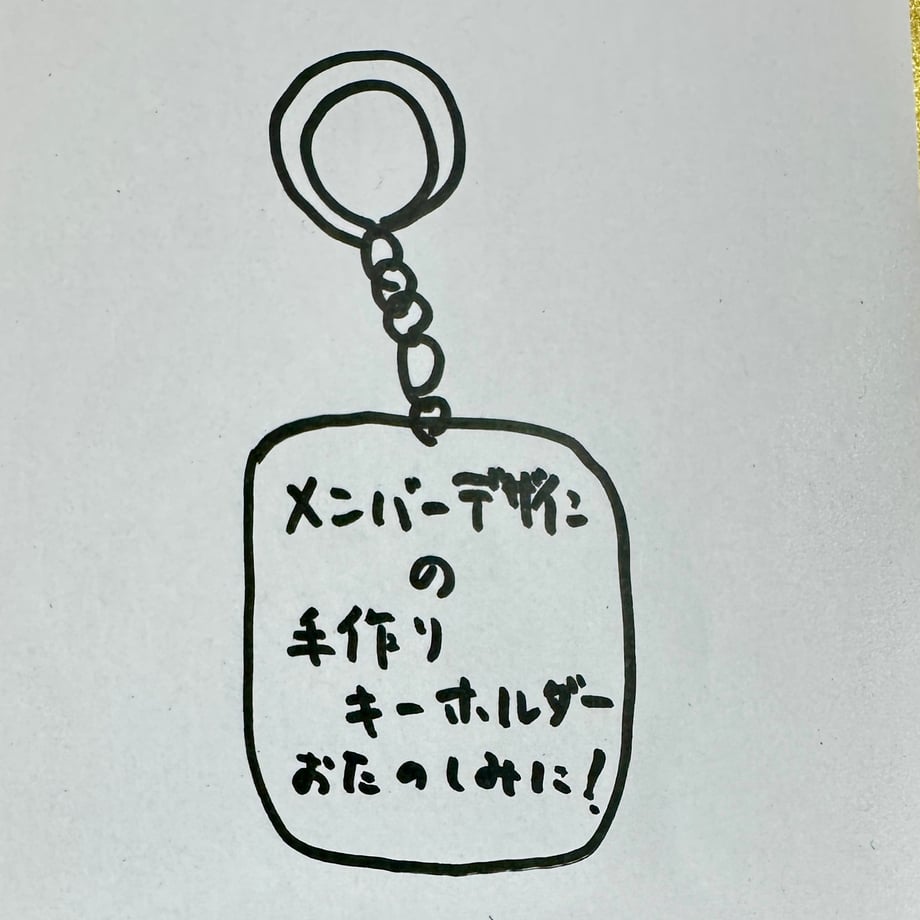 メンバーデザイン
の
手作り
キーホルダー
おたのしみに!